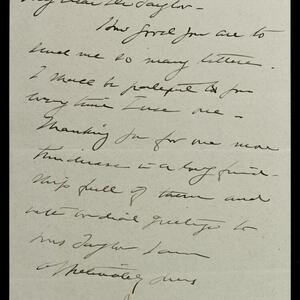 My dear Mr Taylor -
How good you are to
send me so many letters.
I shall be to you
every time I use one -
Thanking you for one more
kindness in a long friend-
ship full of them and
with cordial greetings to
Mrs Taylor I am
Affectionately yours